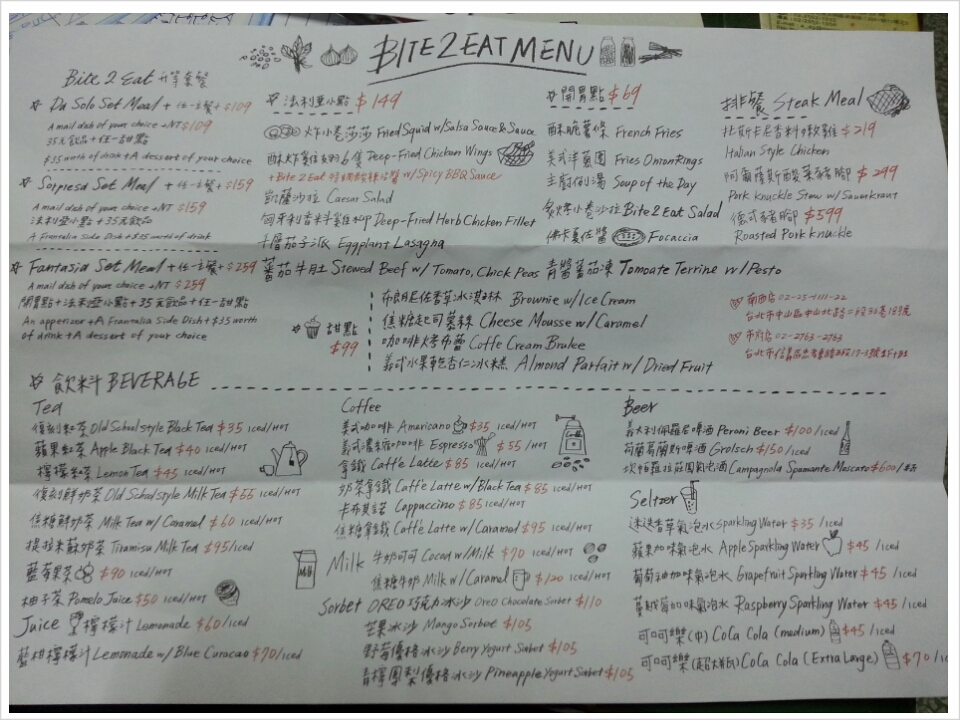 BITE 2 EAT MENU
Bite 2 Eat 升等套餐
Da Solo Set Meal + 任一主餐+ $109
A main dish of your choice +NT$109
35元飲品+任一甜點
$35 worth of drink+A dessert of your choice
Sorpresa Set Meal + 任一主餐+ $159
A main dish of your choice +NT$159
法利亞小點+35元飲品
A Frantalia Side Dish+$35 worth of drink
Fantasia Set Meal +任一主餐+ $259
A main dish of your choice +NT$259
開胃點+法利亞小點+35元飲品+任一甜點
An appetizer +A Frantalia Side Dish+$35 worth
of drink +A dessert of your choice
法利亞小點 $149
炸小卷莎莎 Fried Squid w/Salsa Sauce & Sauce
Deep-Fried Chicken Wings
+Bite 2 Eat w/Spicy BBQ Sauce
凱薩沙拉 Caesar Salad
匈牙利香料雞柳 Deep-Fried Herb Chicken Fillet
千層茄子派 Eggplant Lasagna
蕃茄牛肚 Stewed Beef w/ Tomato, Chick Peas
開胃點 $69
酥脆薯條 French Fries
美式洋蔥圈 Fries Onion Rings
主廚例湯 Soup of the Day
小卷沙拉 Bite 2 Eat Salad
佛卡夏佐醬 Focaccia
青醬蕃茄凍 Tomoate Terrine w/Pesto
排餐 Steak Meal
托斯卡尼香料嫩雞 $219
Italian Style Chicken
阿爾薩斯酸菜豬腳 $299
Pork Knuckle Stew w/ Sauerkraut
德式豬腳 $599
Roasted Pork Knuckle
甜點 $99
布朗尼佐香草冰淇淋 Brownie w/Ice Cream
焦糖起司慕絲 Cheese Mousse w/Caramel
咖啡烤布蕾 Coffe Cream Brulee
義式水果乾杏仁冰糕 Almond Parfait w/ Dried Fruit
南西店 02-25-1111-22
台北市中山區中山北路
市府店 02-2763-2763
台北市信義區忠孝東路
飲料 BEVERAGE
Tea
復刻紅茶 Old School style Black Tea $35 iced/HOT
蘋果紅茶 Apple Black Tea $40 iced/HOT
檸檬紅茶 Lemon Tea $45 iced/HOT
復刻鮮奶茶 Old School style Milk Tea $55 iced/HOT
焦糖鮮奶茶 Milk Tea w/ Caramel $60 iced/HOT
提拉米蘇奶茶 Tiramisu Milk Tea $95/iced
藍莓果茶 $90 iced/HOT
柚子茶 Pomelo Juice $50 iced/HOT
Juice 檸檬汁 Lemonade $60/iced
藍柑檸檬汁 Lemonade w/ Blue Curacao $70/iced
Coffee
美式咖啡 Americano $35 iced/HOT
義式濃縮咖啡 Espresso $55 /HOT
拿鐵 Caffe Latte $85 iced/HOT
奶茶拿鐵 Caffe Latte w/Black Tea $85 iced/HOT
卡布其諾 Cappuccino $85 iced/HOT
焦糖拿鐵 Caffe Latte w/Caramel $95 iced/HOT
Milk 牛奶可可 Cocoa w/Milk $70 iced/HOT
焦糖牛奶 Milk w/Caramel $120 iced/HOT
Sorbet OREO 巧克力冰沙 Oreo Chocolate Sorbet $110
芒果冰沙 Mango Sorbet $105
野莓優格冰沙 Berry Yogurt Sorbet $105
青檸鳳梨優格冰沙 Pineapple Yogurt Sorbet $105
Beer
義大利佩羅尼啤酒 Peroni Beer $100/iced
荷蘭葛蘭斯啤酒 Grolsch $150/iced
坎帕羅拉莊園氣泡酒 Campagnola Spumante Moscato $600/瓶
Seltzer
迷迭香草氣泡水 Sparkling Water $35 /iced
蘋果加味氣泡水 Apple Sparkling Water $45 /iced
葡萄柚加味氣泡水 Grapefruit Sparkling Water $45 /iced
蔓越莓加味氣泡水 Raspberry Sparkling Water $45/iced
可口可樂(中) CoCa Cola (medium) $45/iced
可口可樂(超大瓶) CoCa Cola (Extra Large) $70/ic